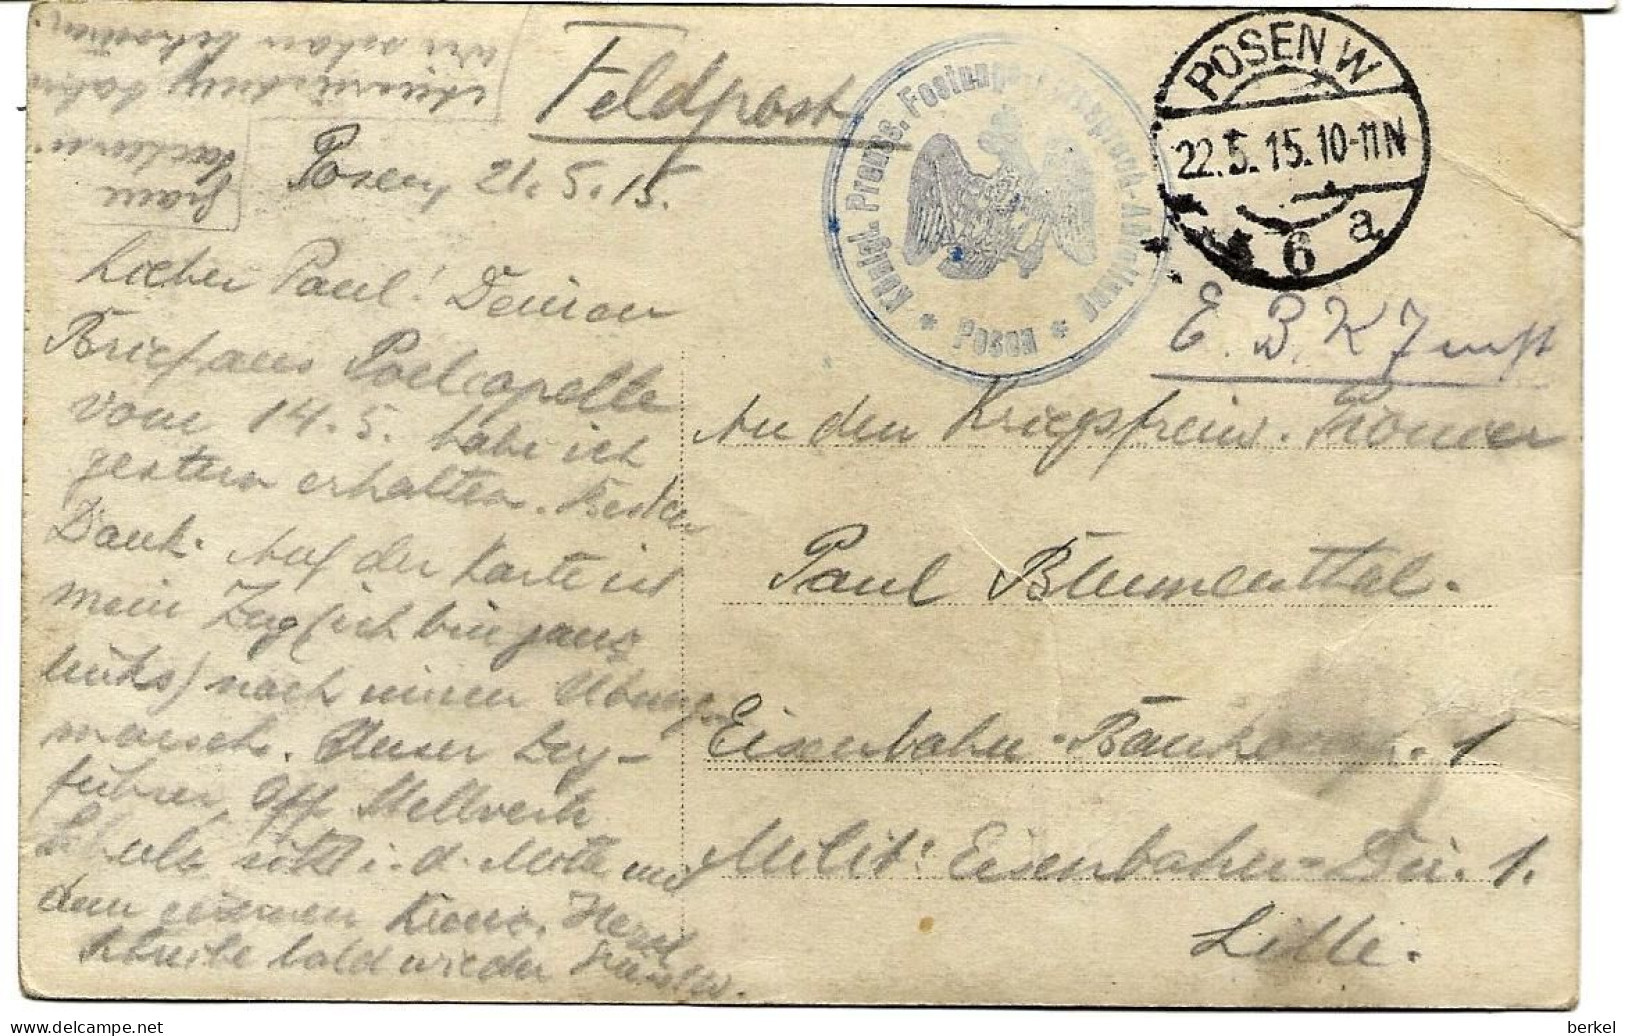 Feldpost
Königl. Preuss. Festungs-Abteilung
* Posen *
POSEN W
22.5.15.10-11N
* 6 a
E. B. K 7
Posen, 21.5.15.
Lieber Paul! Deinen
Brief aus Poelcapelle
vom 14.5. habe ich
gestern erhalten. Besten
Dank. Auf der Karte ist
mein Zug (ich bin ganz
links) nach einem Übungs
marsch. Unser Zug-
führer, Off Stellvertr.
sitzt i. d. Mitte mit
dem eisernen Kreuz. Herzl
Schreibe bald wieder
An den Kriegsfreiw. Pionier
Paul Blumenthal.
Eisenbahn-Baukomp. 1
Milit. Eisenbahn-Dir. 1.
Lille.
berkel